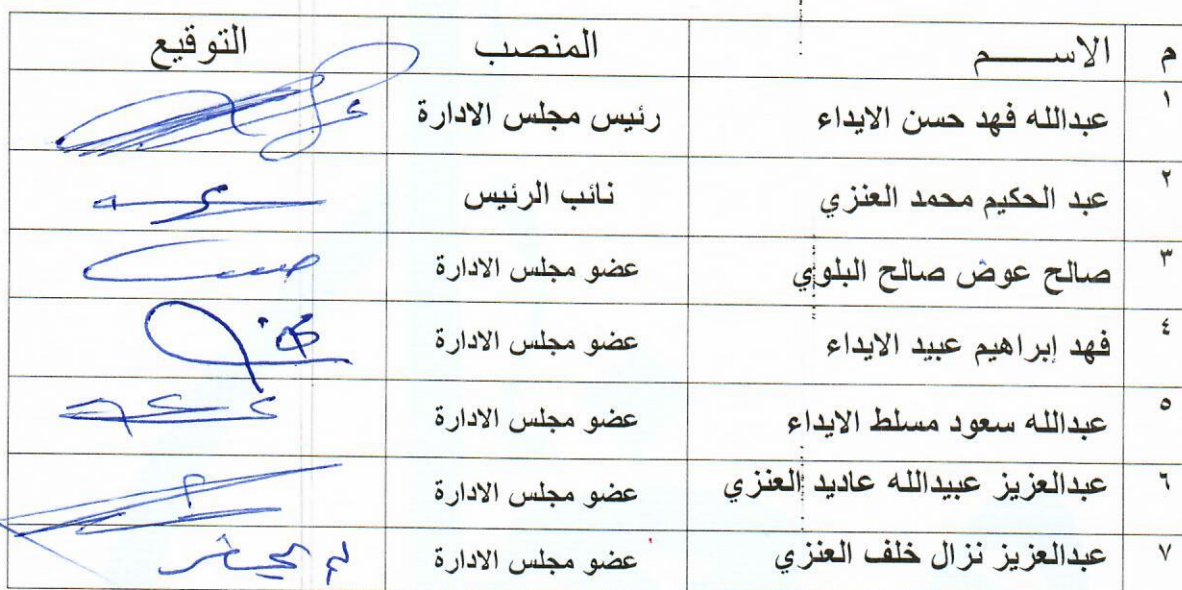 م الاســــــم المنصب التوقيع
١ عبدالله فهد حسن الايداء رئيس مجلس الادارة
٢ عبد الحكيم محمد العنزي نائب الرئيس
٣ صالح عوض صالح البلوي عضو مجلس الادارة
٤ فهد إبراهيم عبيد الايداء عضو مجلس الادارة
٥ عبدالله سعود مسلط الايداء عضو مجلس الادارة
٦ عبدالعزيز عبيدالله عاديد العنزي عضو مجلس الادارة
٧ عبدالعزيز نزال خلف العنزي عضو مجلس الادارة لم يحضر